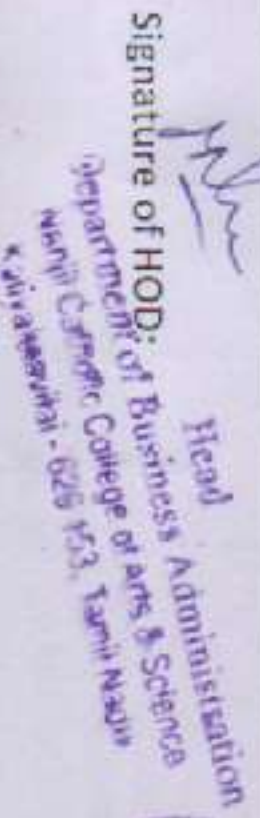 Signature of HOD:
Head
Department of Business Administration
Nanjil Catholic College of Arts & Science
Kaliyakkavilai - 629 153, Tamil Nadu